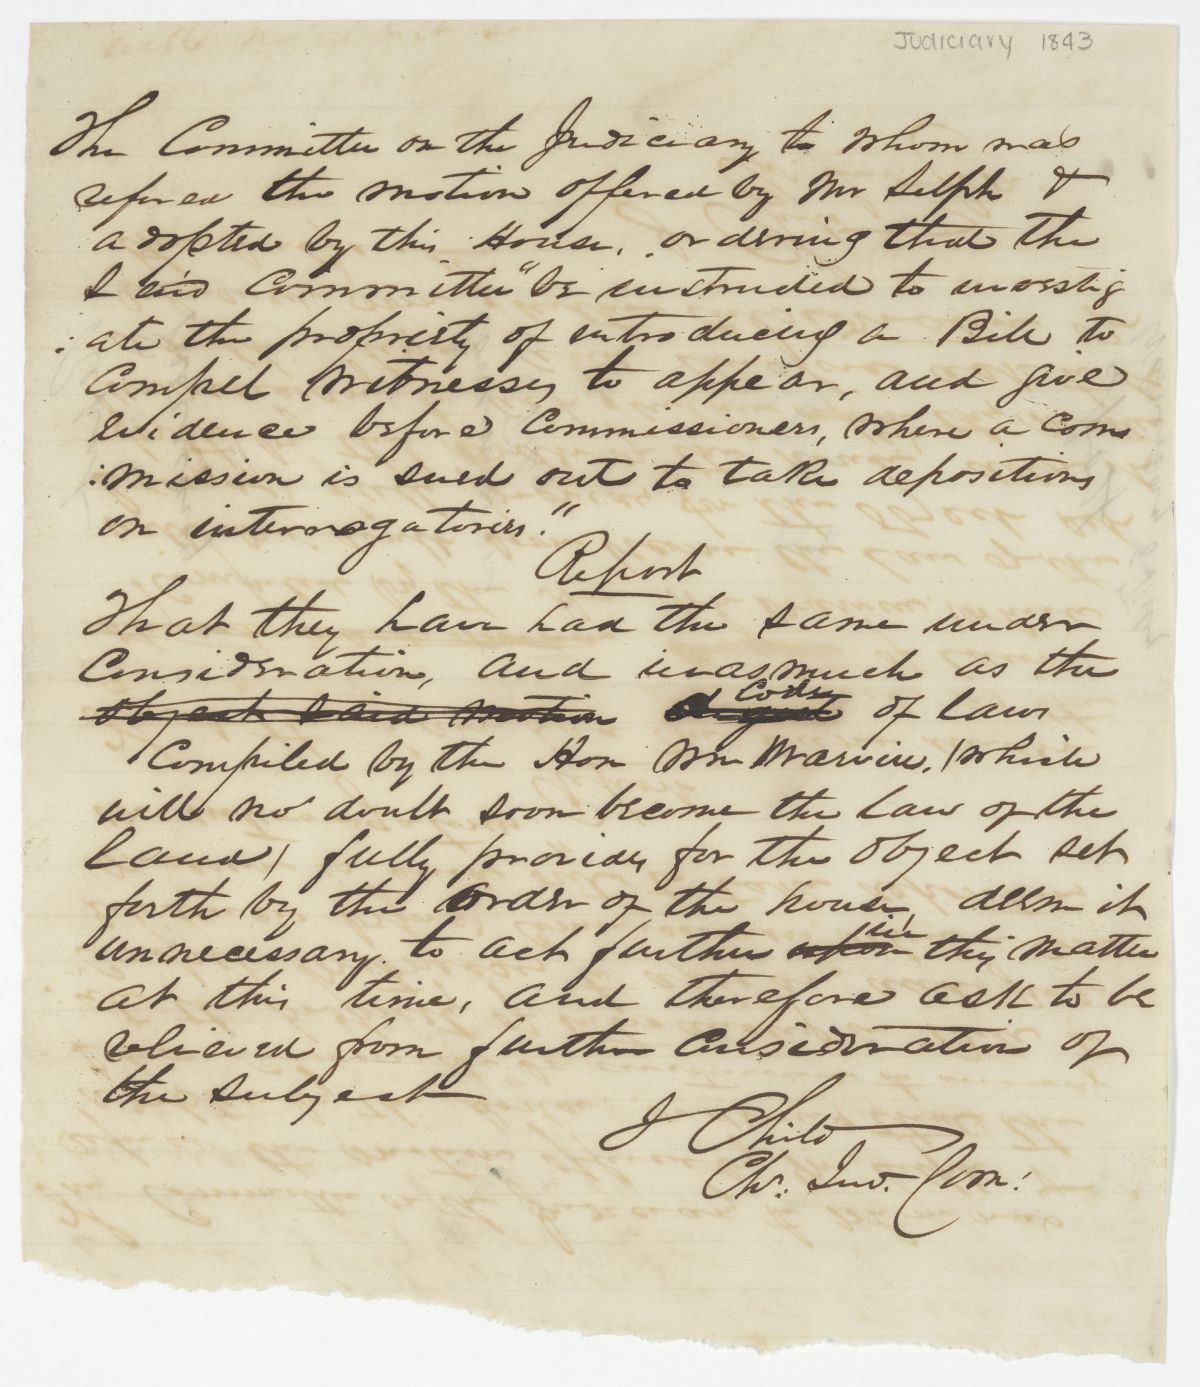 Judiciary 1843
The Committee on the Judiciary to whom was
refered the motion offered by Mr Selph &
adopted by this House, ordering that the
said Committee "be instructed to investig
:ate the propriety of introducing a Bill to
Compel Witnesses to appear, and give
evidence before Commissioners, where a Com
:mission is sued out to take depositions
on interrogatories."
Report
That they have had the same under
Consideration, and inasmuch as the
object said motion Digest Code of laws
Compiled by the Hon Wm Marvin, (which
will no doubt soon become the law of the
land) fully provides for the object set
forth by the order of the house, deem it
unnecessary to act further upon in this matter
at this time, and therefore ask to be
relieved from further consideration of
the subject
J Child
Chr: Jud. Com: